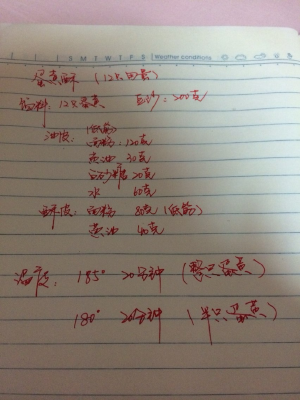 S M T W T F S Weather conditions
蛋黄酥 (12只的量)
馅料: 12只蛋黄 豆沙: 200克
油皮: (低筋)
面粉: 120克
黄油 30克
白砂糖 20克
水 60克
酥皮: 面粉 80克 (低筋)
黄油 40克
温度: 185° 20分钟 (整只蛋黄)
180° 20分钟 (半只蛋黄)